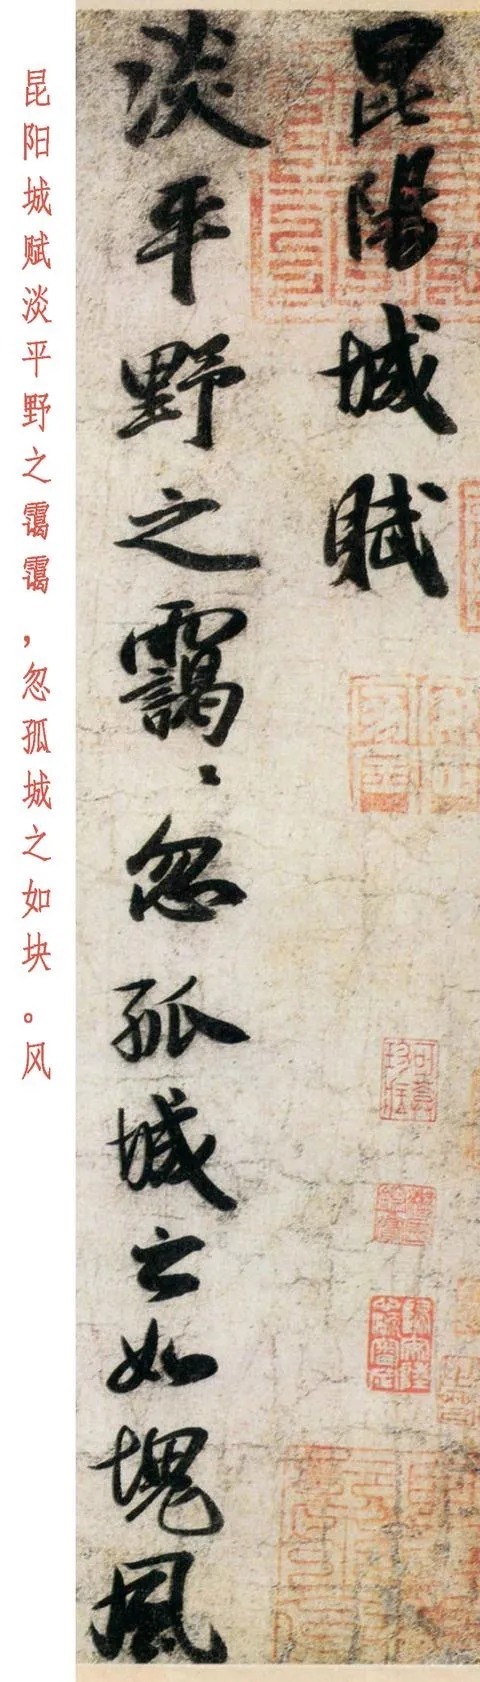 昆陽城賦
淡平野之靄〻忽孤城之如塊風
昆阳城赋淡平野之霭霭，忽孤城之如块。风